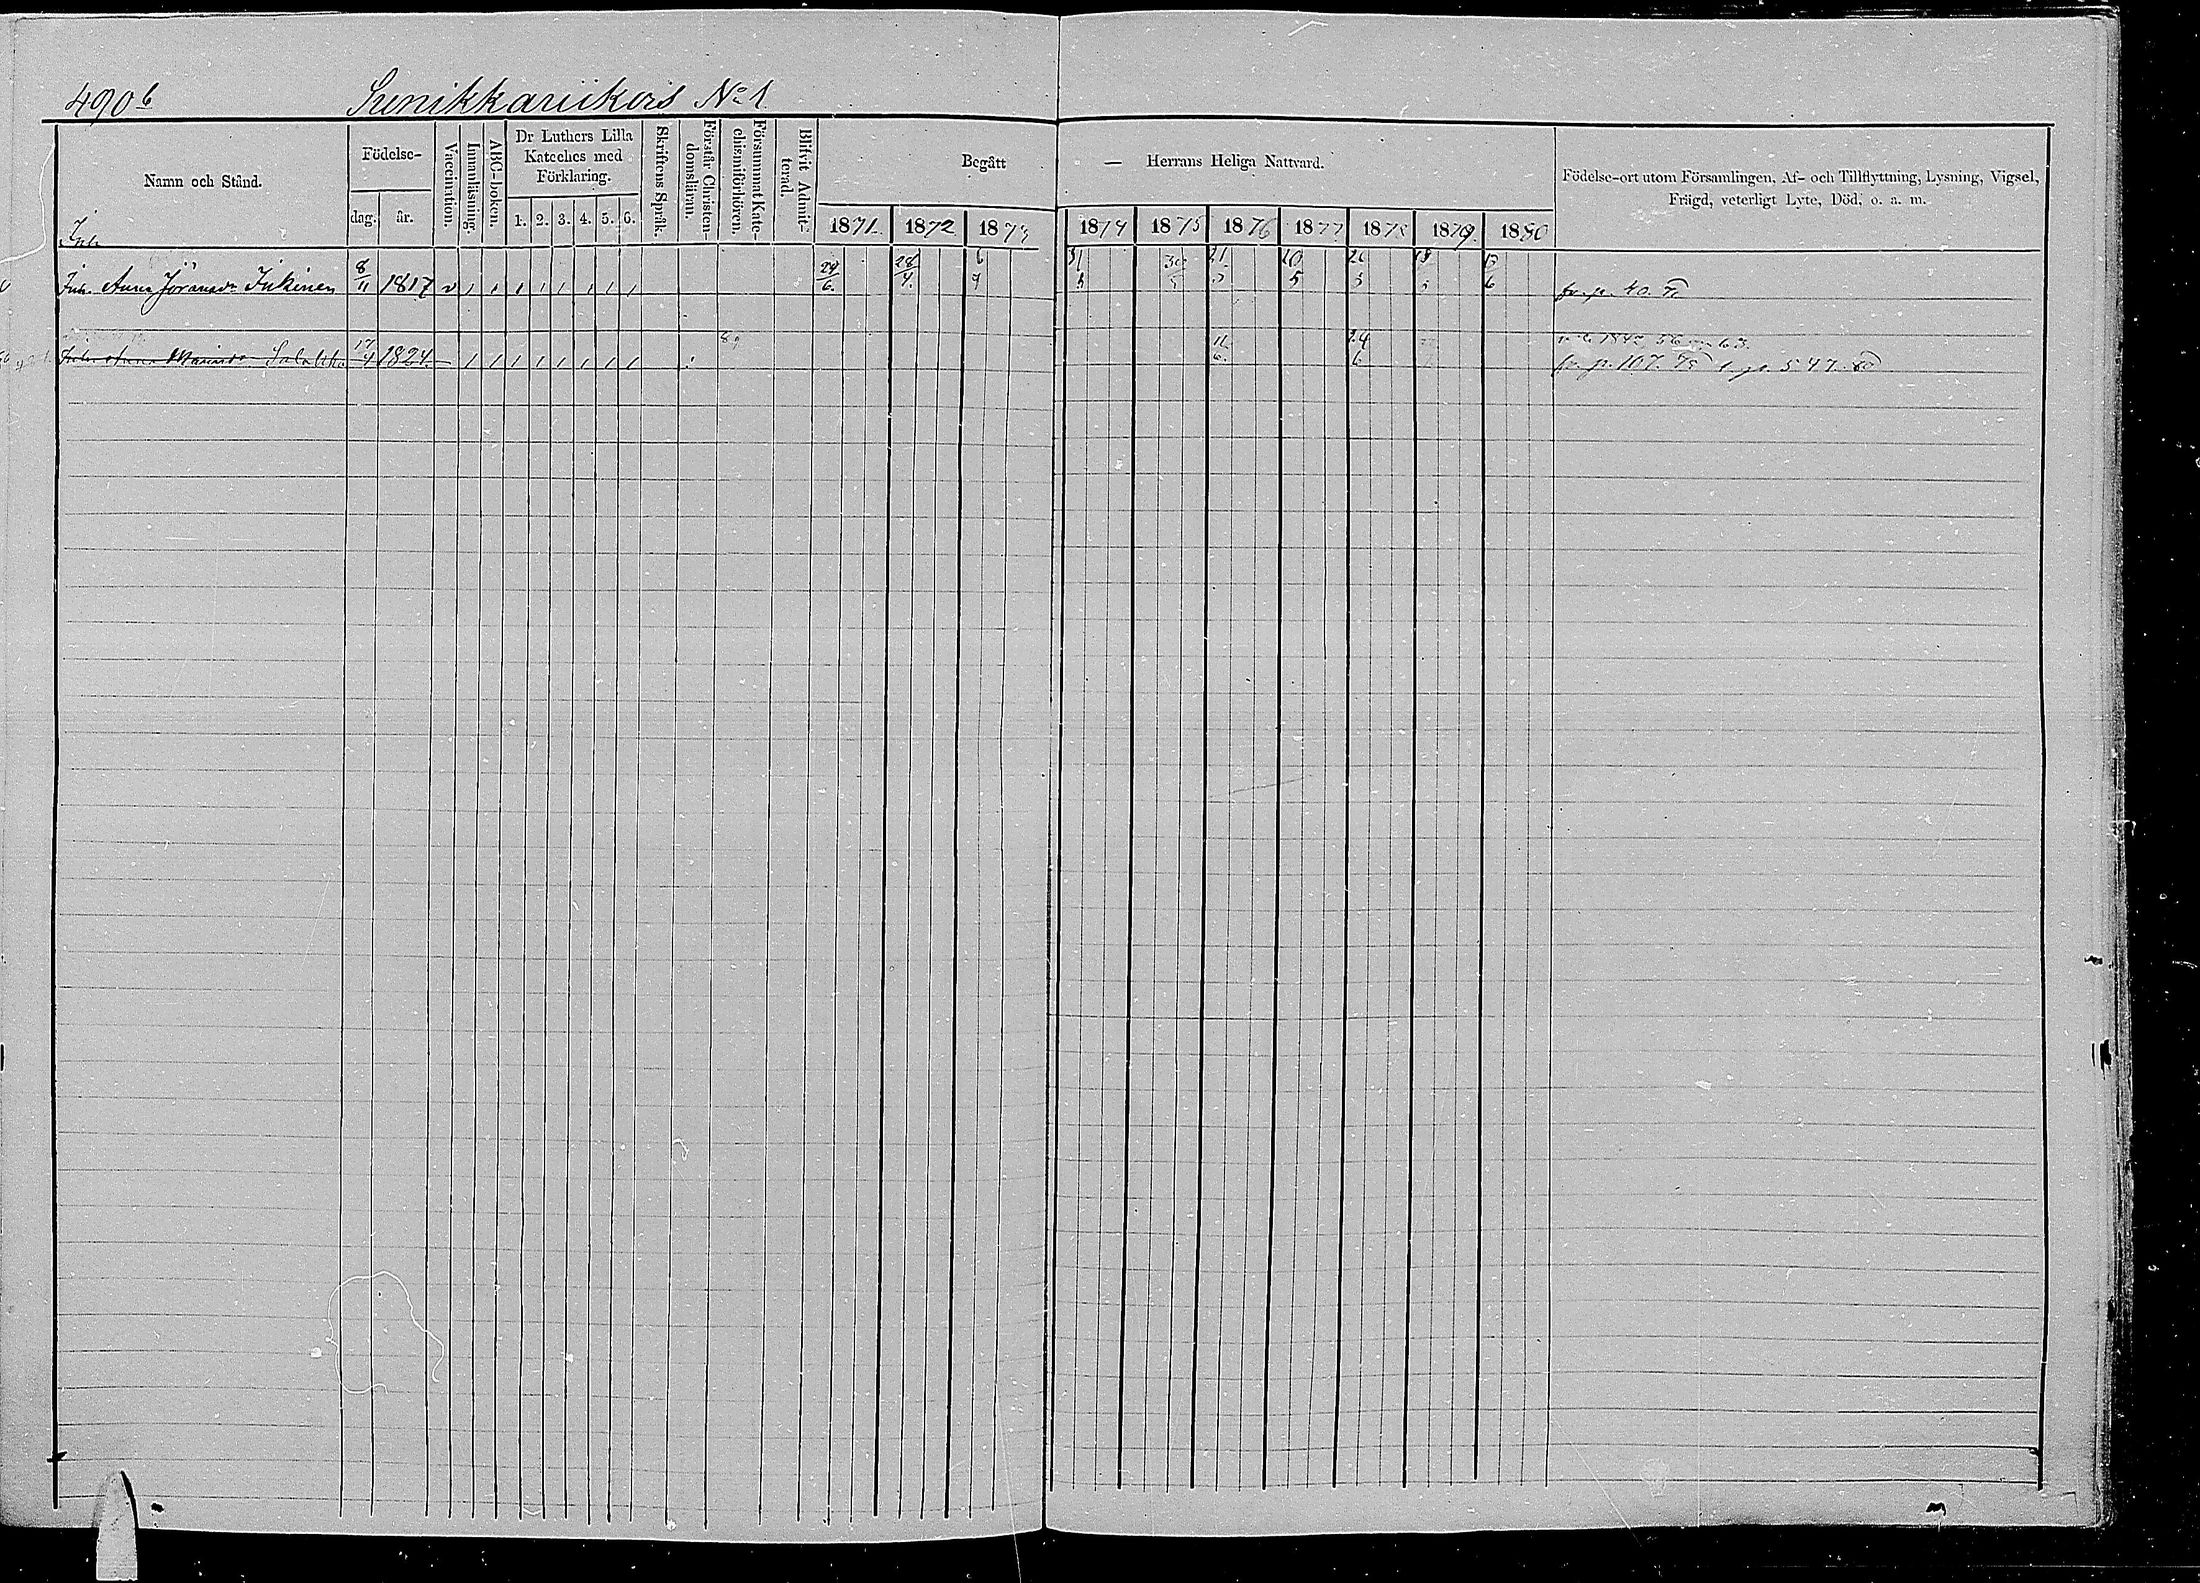 490 b Sunikkariikois No 1
Namn och Stånd.
Födelse-
dag. år.
Vaccination.
Innanläsning.
ABC-boken.
Dr Luthers Lilla Kateches med Förklaring.
1. 2. 3. 4. 5. 6.
Skriftens Språk.
Förstår Christen-domsläran.
Försummat Kate-chismiförhören.
Blifvit Admit-terad.
Begått — Herrans Heliga Nattvard.
1871. 1872 1873 1874 1875 1876 1877 1878 1879. 1880
Födelse-ort utom Församlingen, Af- och Tillflyttning, Lysning, Vigsel,
Frägd, veterligt Lyte, Död, o. a. m.
Inh
Inh. Anna Jöransdr Inkinen 8/11 1817 v 24/6. 28/4. 6/7 31/5 30/5 21/5 10/5 26/5 13/6 fr. p. 40.
Anna 17/4 1824. 89 11/6. 24/6 fr. p. 107. 75 t. p. 547. 80